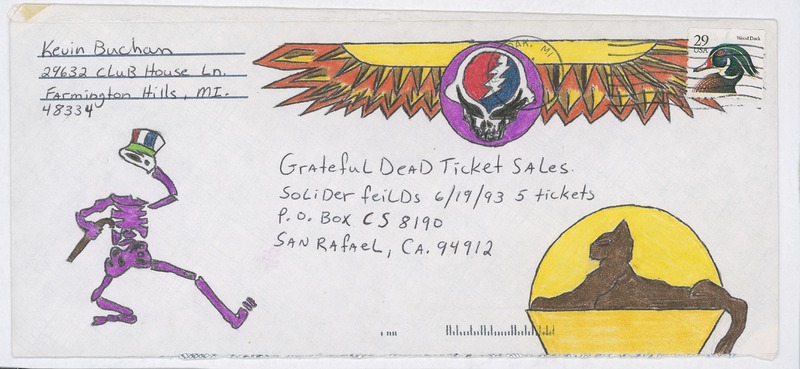 Kevin Buchan
29632 Club House Ln.
Farmington Hills, MI.
48334
29
USA
Wood Duck
Grateful Dead Ticket Sales.
Soliderfeilds 6/19/93 5 tickets
P.O. Box CS 8190
San Rafael, CA. 94912